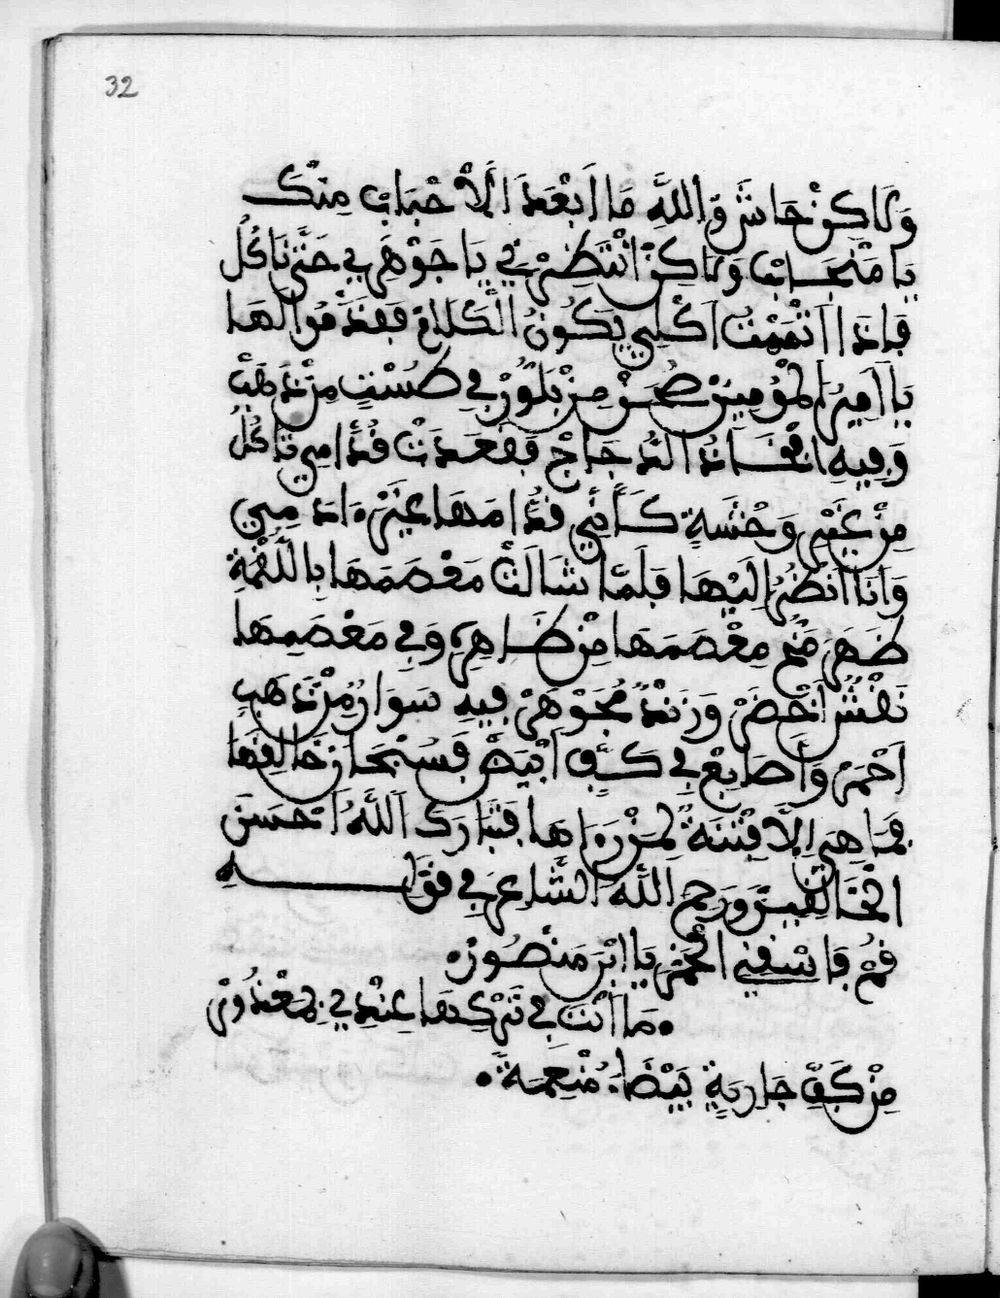 32
وَلَاكِنْ حَاشَ وَاللَّهِ مَا اَبْعَدَ الَاحْبَابْ مِنْكَ
يَا مِنْجَابْ وَلَاكِنْ انْتَظِرْنِي يَا جَوْهَرِي حَتَّى نَاكُلُ
فَإِذَا اَتْمَمْتُ اَكْلِي يَكُونُ الْكَلَامْ فَقَدَّمُوا لَهَا
يَا اَمِيرُ الْمُؤْمِنِينْ صُحَنْ مِنْ بَلُّوْرْ فِي طَسْتٍ مِنْ ذَهَبْ
وَفِيهِ افْخَاذُ الدُّجَاجْ فَقَعَدَتْ قُدَّامِي تَاكُلُ
مِنْ غَيْرِ وَحْشَةٍ كَأَنِّي قُدَّامَهَا غَيْرَ ءَادَمِي
وَانَا انْظُرُ الَيْهَا فَلَمَّا شَالَتْ مَعْصَمَهَا بِاللُّقْمَةِ
ظَهَرَ مُخُّ مِعْصَمَهَا مِنْ ظَاهِرِهِ وَفِي مَعْصَمِهَا
نَقْشُ اَخْضَرْ وَزَنْدٌ مُجَوْهَرْ فِيهِ سَوَارُ مِنْ ذَهَبِ
اَحْمَرْ وَأَصَابِعْ فِي كَفٍّ اَبْيَضْ فَسُبْحَانَ خَالِقِهَا
فَمَا هِيَ إِلَّا فِتْنَةٌ لِمَنْ رَءَاهَا فَتَبَارَكَ اللَّهُ اَحْسَنَ
الْخَالِقِينَ وَرَحِمَ اللَّهُ الشَّاعِرَ فِي قَوْلِهِ
قُمْ فَاسْقِنِي الْخَمْرَ يَا ابْنَ مَنْصُورْ
مَا اَنْتَ فِي تَرْكِهَا عِنْدِي بِمَعْذُورْ
مِنْ كَفِّ جَارِيَةٍ بَيْضَاءَ مُنْعِمَةٍ